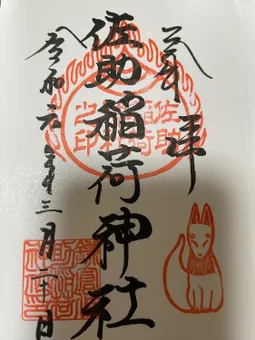 奉拝
佐助稲荷神社
佐助
稲荷
之印
令和年三月二十日